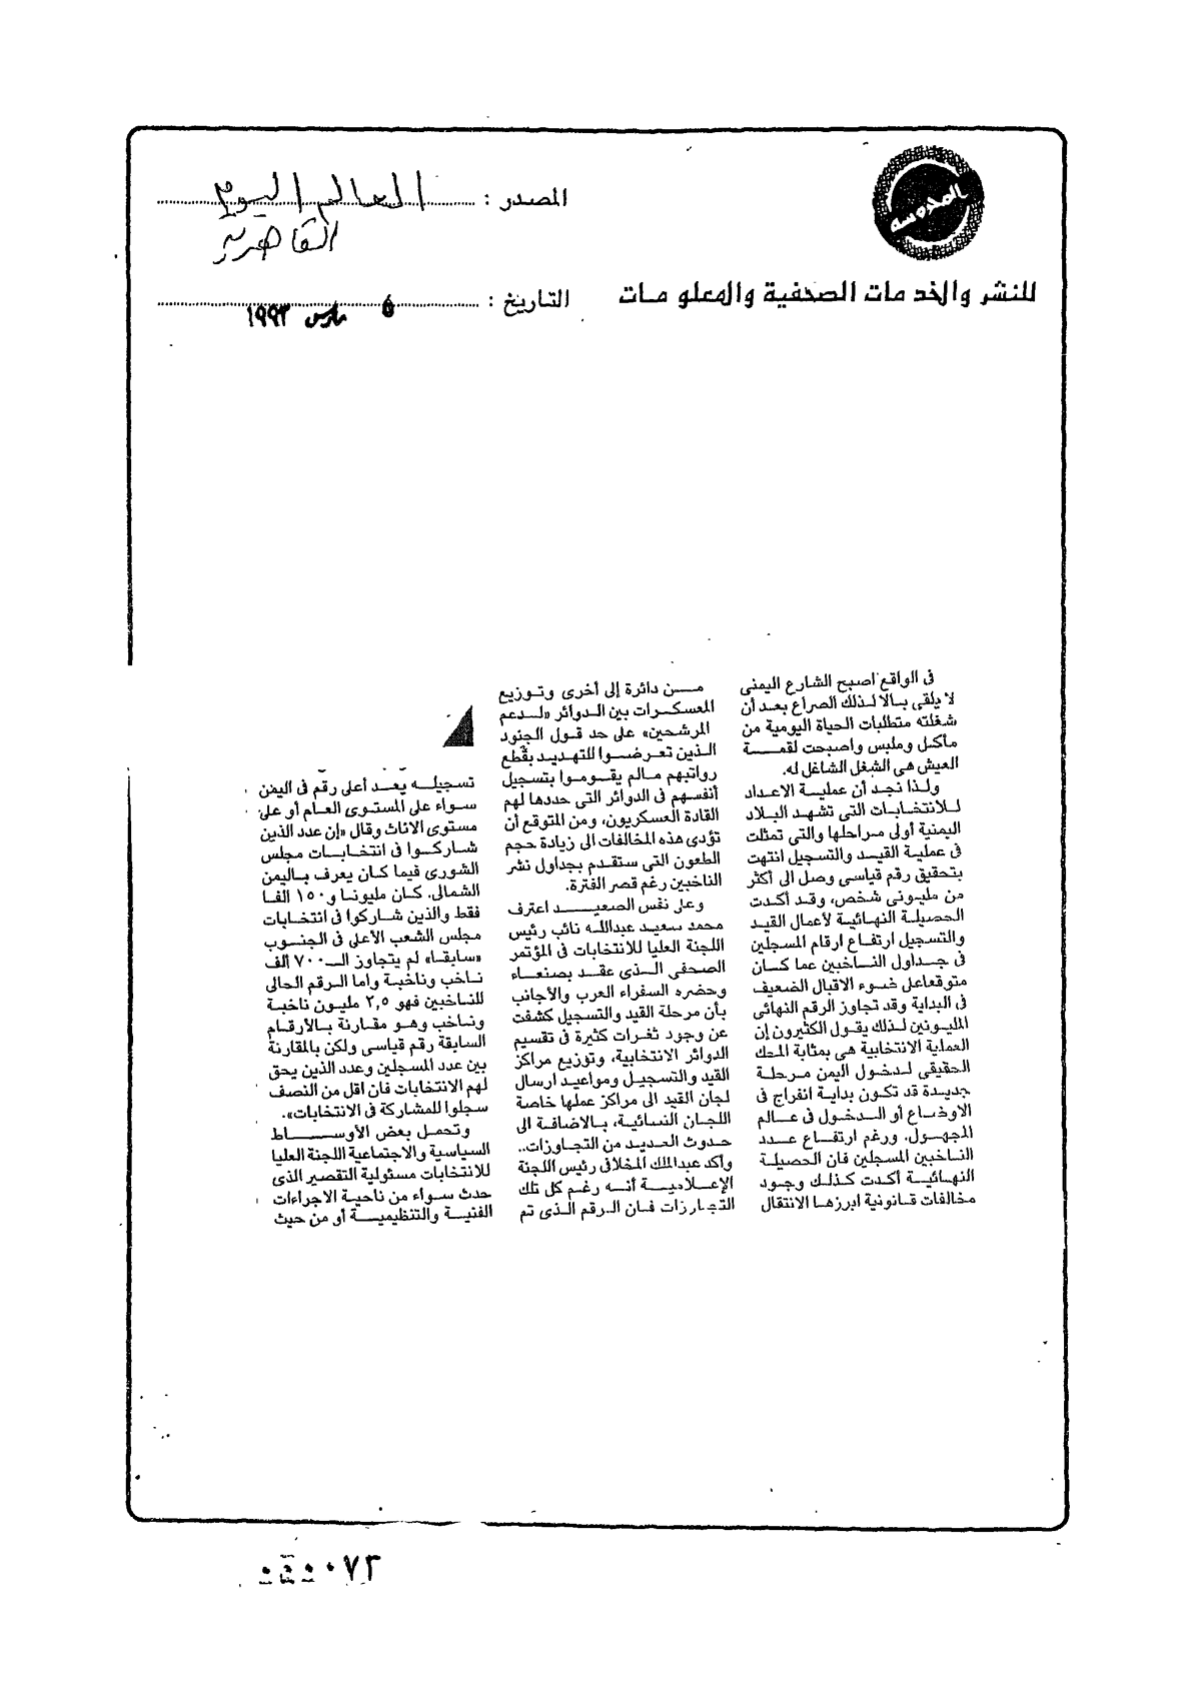 المحروسة
للنشر والخدمات الصحفية والمعلومات
المصدر : العالم اليوم
القاهرية
التاريخ : مارس ١٩٩٣
فى الواقع اصبح الشارع اليمنى
لا يلقى بالا لذلك الصراع بعد أن
شغلته متطلبات الحياة اليومية من
مأكل وملبس واصبحت لقمة
العيش هى الشغل الشاغل له.
ولذا نجد أن عملية الاعداد
للانتخابات التى تشهد البلاد
اليمنية أولى مراحلها والتى تمثلت
فى عملية القيد والتسجيل انتهت
بتحقيق رقم قياسى وصل الى أكثر
من مليونى شخص، وقد أكدت
الحصيلة النهائية لأعمال القيد
والتسجيل ارتفاع ارقام المسجلين
فى جداول الناخبين عما كان
متوقعا على ضوء الاقبال الضعيف
فى البداية وقد تجاوز الرقم النهائى
المليونين لذلك يقول الكثيرون إن
العملية الانتخابية هى بمثابة المحك
الحقيقى لدخول اليمن مرحلة
جديدة قد تكون بداية انفراج فى
الاوضاع أو الدخول فى عالم
المجهول. ورغم ارتفاع عدد
الناخبين المسجلين فان الحصيلة
النهائية أكدت كذلك وجود
مخالفات قانونية ابرزها الانتقال
من دائرة إلى أخرى وتوزيع
المعسكرات بين الدوائر «لدعم
المرشحين» على حد قول الجنود
الذين تعرضوا للتهديد بقطع
رواتبهم مالم يقوموا بتسجيل
أنفسهم فى الدوائر التى حددها لهم
القادة العسكريون، ومن المتوقع أن
تؤدى هذه المخالفات الى زيادة حجم
الطعون التى ستقدم بجداول نشر
الناخبين رغم قصر الفترة.
وعلى نفس الصعيد اعترف
محمد سعيد عبدالله نائب رئيس
اللجنة العليا للانتخابات فى المؤتمر
الصحفى الذى عقد بصنعاء
وحضره السفراء العرب والأجانب
بأن مرحلة القيد والتسجيل كشفت
عن وجود ثغرات كثيرة فى تقسيم
الدوائر الانتخابية، وتوزيع مراكز
القيد والتسجيل ومواعيد ارسال
لجان القيد الى مراكز عملها خاصة
اللجان النسائية، بالاضافة الى
حدوث العديد من التجاوزات..
وأكد عبدالملك المخلافى رئيس اللجنة
الإعلامية أنه رغم كل تلك
التجاوزات فان الرقم الذى تم
تسجيله يعد أعلى رقم فى اليمن
سواء على المستوى العام أو على
مستوى الاناث وقال «إن عدد الذين
شاركوا فى انتخابات مجلس
الشورى فيما كان يعرف باليمن
الشمالى. كان مليونا و١٥٠ الفا
فقط والذين شاركوا فى انتخابات
مجلس الشعب الأعلى فى الجنوب
«سابقا» لم يتجاوز الـ٧٠٠ ألف
ناخب وناخبة واما الرقم الحالى
للناخبين فهو ٢,٥ مليون ناخبة
وناخب وهو مقارنة بالأرقام
السابقة رقم قياسى ولكن بالمقارنة
بين عدد المسجلين وعدد الذين يحق
لهم الانتخابات فان اقل من النصف
سجلوا للمشاركة فى الانتخابات».
وتحمل بعض الأوساط
السياسية والاجتماعية اللجنة العليا
للانتخابات مسئولية التقصير الذى
حدث سواء من ناحية الاجراءات
الفنية والتنظيمية أو من حيث